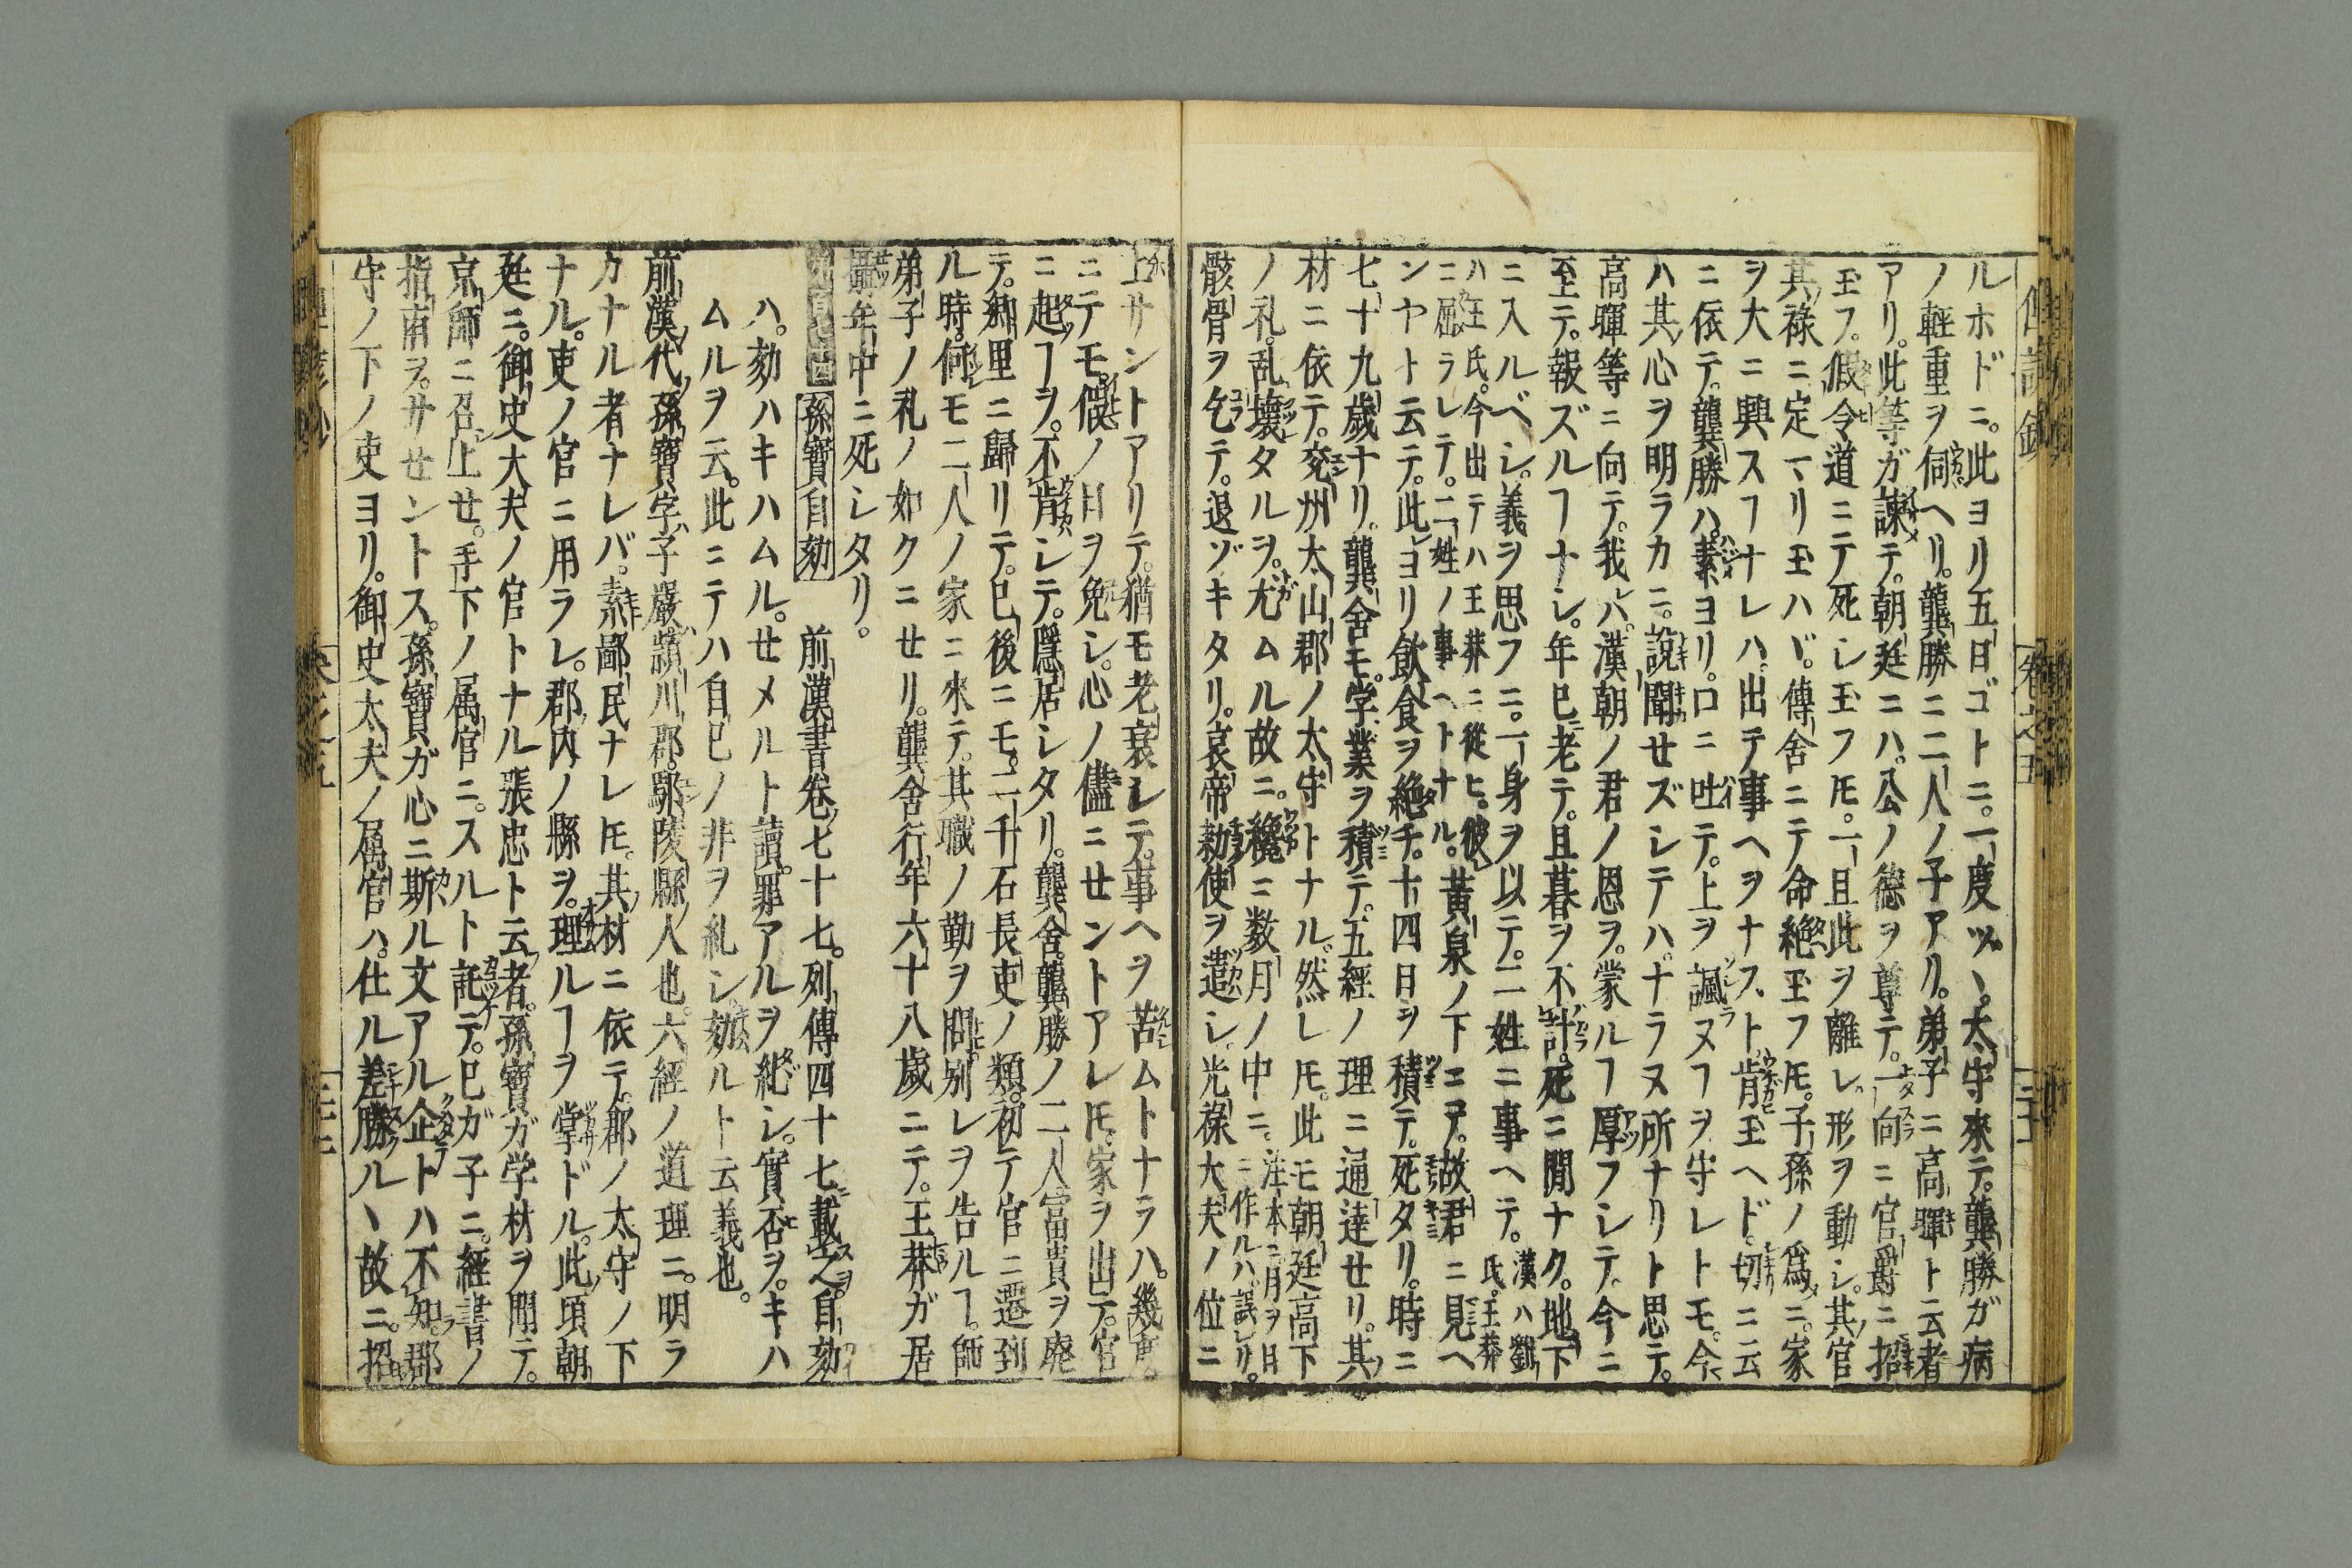 ルホドニ。此ヨリ五日ゴトニ。一度ヅヽ。太守來テ。龔勝ガ病
ノ輕重ヲ伺ヘリ。龔勝ニ二人ノ子アリ。弟子ニ高暉ト云者
アリ。此等ガ諫テ。朝廷ニハ。公ノ德ヲ尊テ。一向ニ官爵ニ招
玉フ。假令道ニテ死シ玉フ𪜈。一且此ヲ離レ。形ヲ動シ。其官
其祿ニ定マリ玉ハヾ。傳舍ニテ命絶玉フ𪜈。子孫ノ爲ニ。家
ヲ大ニ興スヿナレハ。出テ事ヘヲナスト。肯玉ヘド。切ニ云
ニ依テ。龔勝ハ。素ヨリ。口ニ吐テ。上ヲ諷ヌヿヲ守レトモ。今
ハ其心ヲ明ラカニ。說聞せズシテハ。ナラヌ所ナリト思テ。
高暉等ニ向テ。我レハ。漢朝ノ君ノ恩ヲ。蒙ルヿ厚フシテ。今ニ
至テ。報ズルヿナシ。年已老テ。且暮ヲ不計。死ニ間ナク。地下
ニ入ルベシ。義ヲ思フニ。一身ヲ以テ。二姓ニ事ヘテ。漢ハ劉氏。王莽
ハ王氏。今出テハ王莽ニ從ヒ。彼ニ屈ラレテ。二姓ノ事ヘトナル。黃泉ノ下ニテ。故君ニ見ヘ
ンヤト云テ。此ヨリ飮食ヲ絶チ。十四日ヲ積テ。死タリ。時ニ
七十九歲ナリ。龔舍モ。学業ヲ積テ。五經ノ理ニ通達せリ。其
材ニ依テ。兗州太山郡ノ太守トナル。然レ𪜈。此モ朝廷高下
ノ礼。乱壞タルヲ。尤ムル故ニ。纔ニ数月ノ中ニ。注本ニ。月ヲ日ニ作ルハ。誤レリ。
骸骨ヲ乞テ。退ゾキタリ。哀帝勅使ヲ遣シ。光祿大夫ノ位ニ
上サントアリテ。猶モ老衰レテ。事ヘヲ苦ムトナラハ。幾度。
ニテモ。假ノ日ヲ免シ。心ノ儘ニせントアレ𪜈。家ヲ出テ。官
ニ起ヿヲ。不肯シテ。隱居シタリ。龔舍。龔勝ノ二人富貴ヲ廃
テ。鄕里ニ歸リテ。已後ニモ。二千石長吏ノ類。初テ官ニ遷到
ル時。何モ二人ノ家ニ來テ。其職ノ勤ヲ問。別レヲ告ルヿ。師
弟子ノ礼ノ如クニせリ。龔舍行年六十八歲ニテ。王莽ガ居
攝年中ニ死シタリ。
孫寶自劾　前漢書卷七十七。列傳四十七載之。自劾
ハ。劾ハキハムル。せメルト讀。罪アルヲ糺シ。實否ヲ。キハ
ムルヲ云。此ニテハ自已ノ非ヲ糺シ。劾ルト云義也。
前漢代孫寶字ハ子嚴頴川郡。鄢陵縣人也。六經ノ道理ニ。明ラ
カナル者ナレバ。素鄙民ナレ𪜈。其材ニ依テ。郡ノ太守ノ下
ナル。吏ノ官ニ用ラレ。郡内ノ縣ヲ。理ルヿヲ掌ドル。此頃朝
廷ニ。御史大夫ノ官トナル張忠ト云者。孫寶ガ学材ヲ聞テ。
京師ニ召上せ。手下ノ属官ニ。スルト託テ。已ガ子ニ。經書ノ
指南ヲ。サせントス。孫寶ガ心ニ斯ル文アル企トハ不知。郡
守ノ下ノ吏ヨリ。御史太夫ノ属官ハ。仕ル差勝ルヽ故ニ。招
卷之五